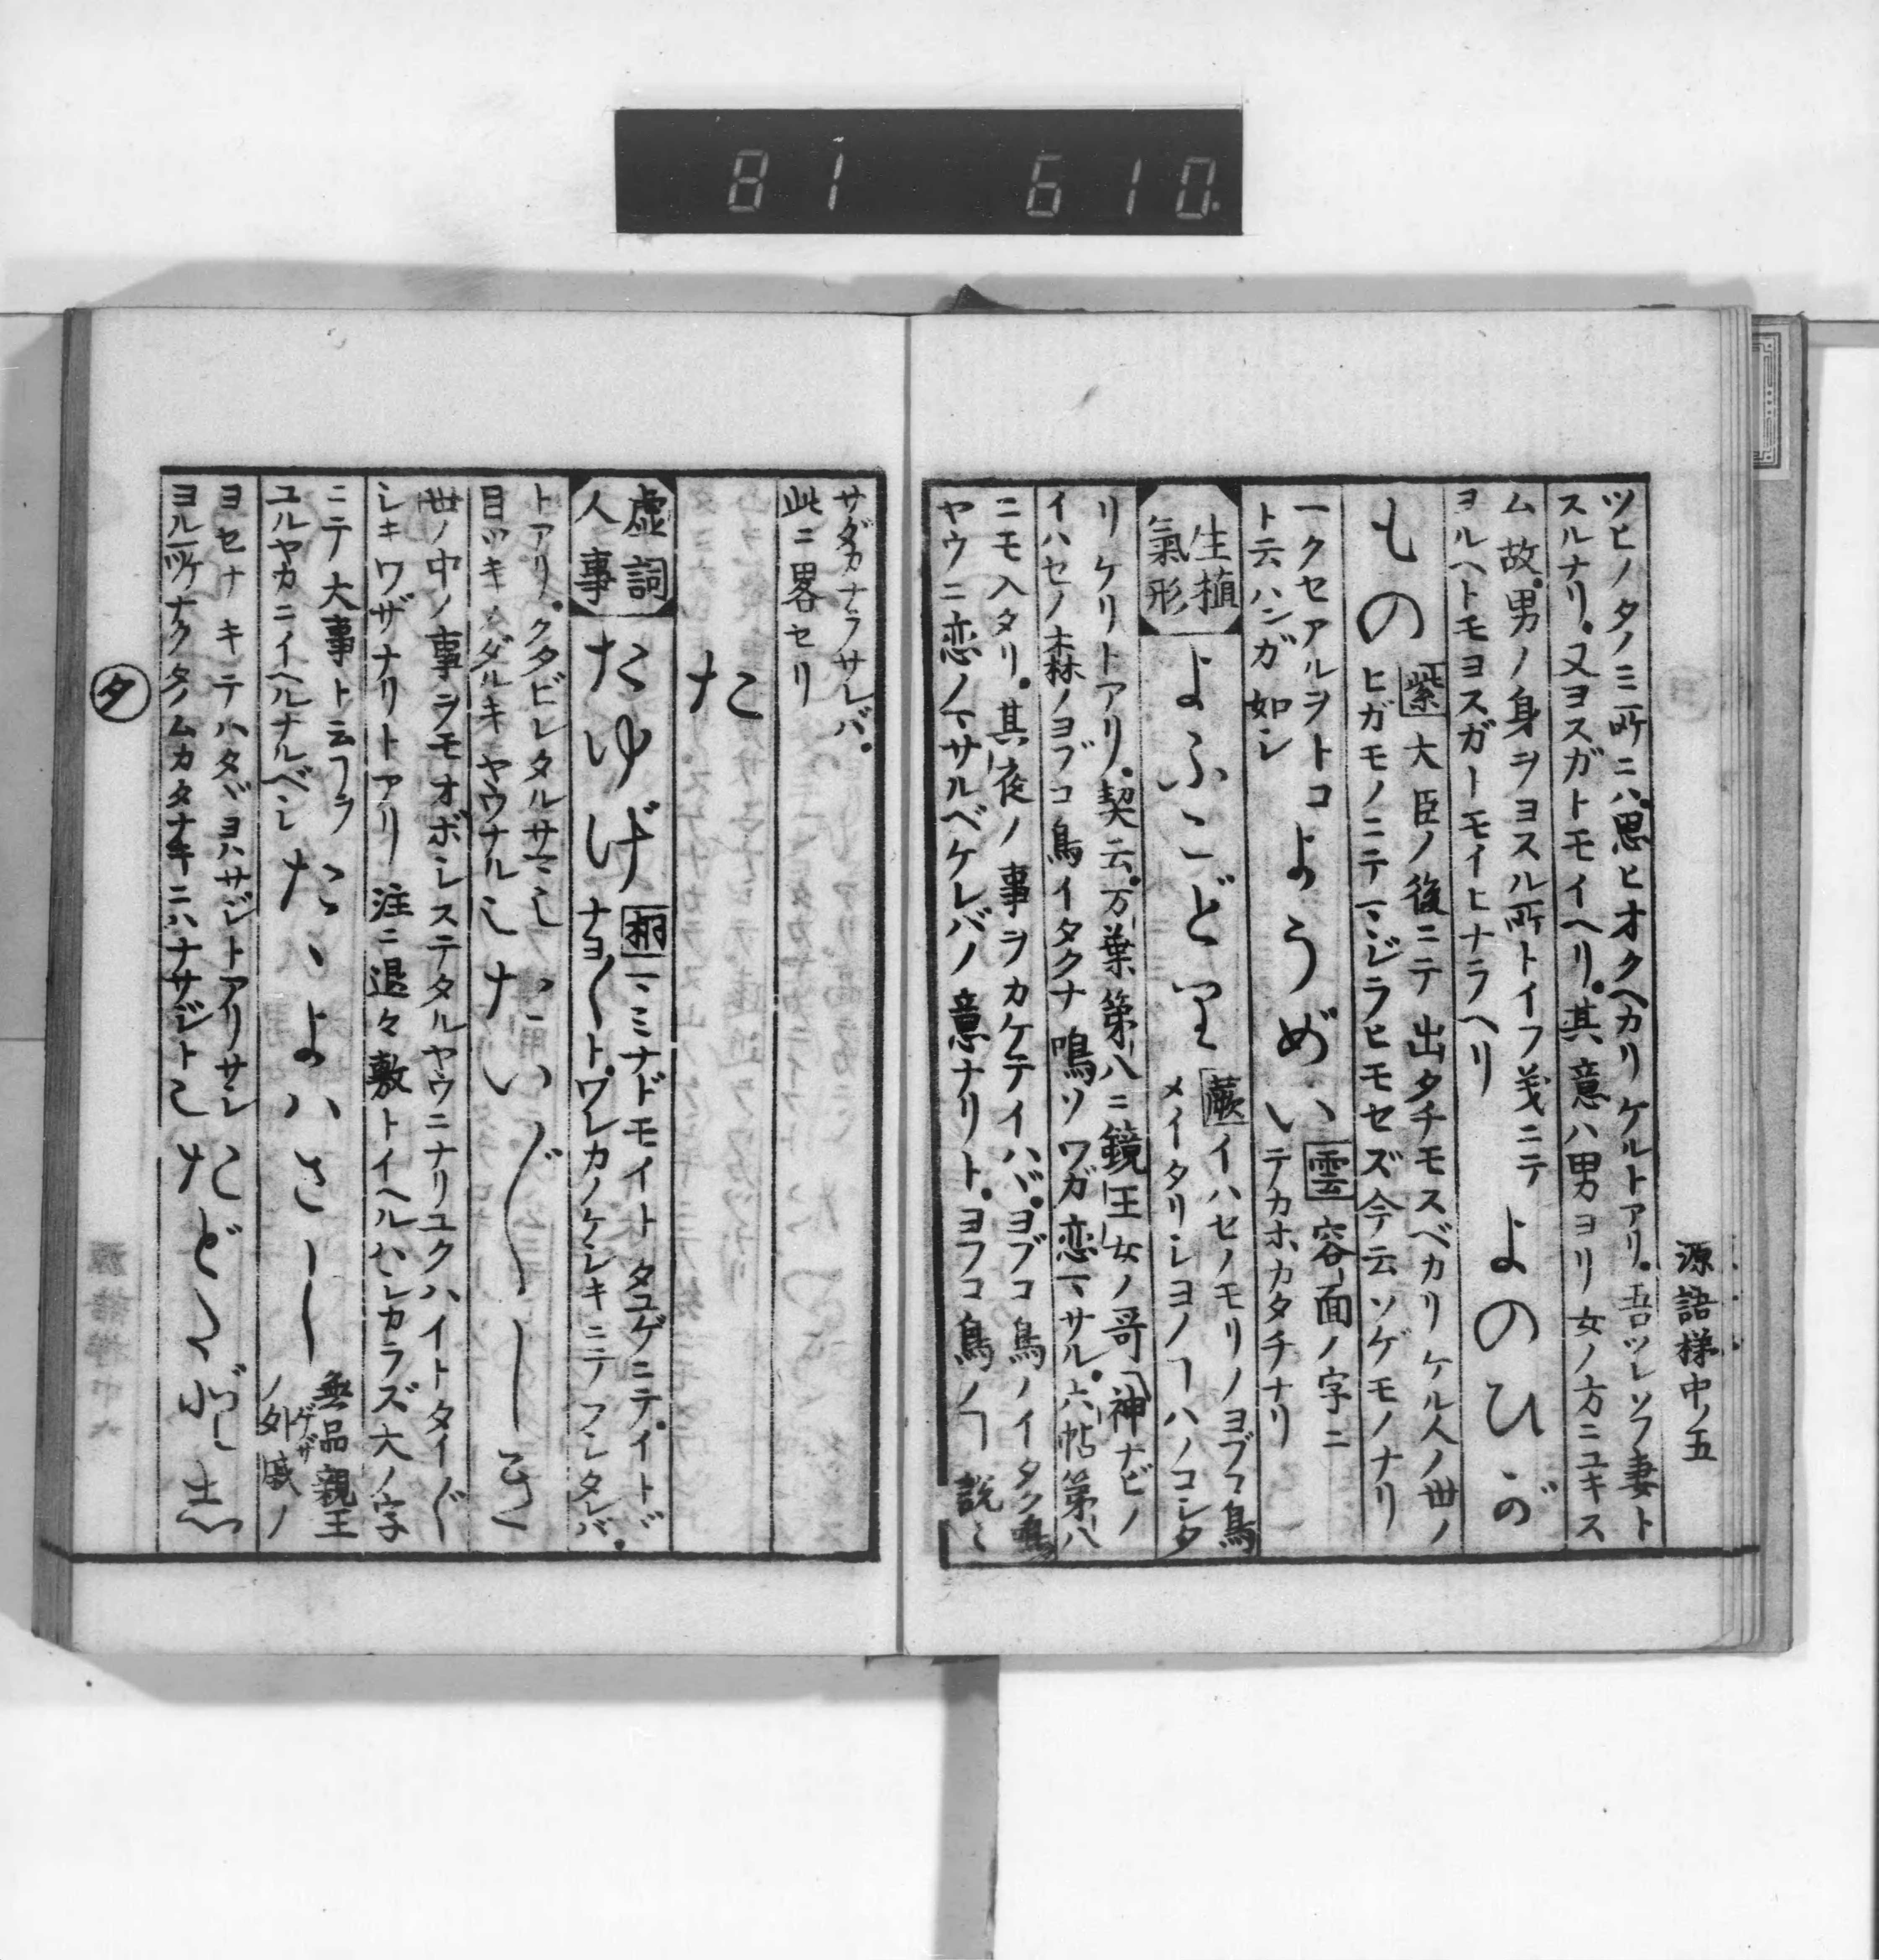 81 610
源語梯中ノ五
ツヒノタノミ所ニハ思ヒオクヘカリケルトアリ。吾ツレソフ妻ト
スルナリ。又ヨスガトモイヘリ。其意ハ男ヨリ女ノ方ニユキス
ム故。男ノ身ヲヨスル所トイフ義ニテ
ヨルヘトモヨスガトモイヒナラヘリ
よのひゞ
もの
紫 大臣ノ後ニテ出タチモスベカリケル人ノ世ノ
ヒガモノニテマジラヒモセズ今云ソゲモノナリ
一クセアルヲトコ
ト云ハンガ如シ
ようめい
雲 容面ノ字ニ
テカホカタチナリ
生植
氣形
よふこどり
蕨 イハセノモリノヨブコ鳥
メイタリシヨノヿハノコシタ
リケリトアリ。契云。万葉第八ニ鏡王女ノ哥「神ナビノ
イハセノ森ノヨブコ鳥イタクナ鳴ソワガ恋マサル。六帖第八
ニモ入タリ。其夜ノ事ヲカケテイハバ。ヨブコ鳥ノイタク鳴
ヤウニ恋ノマサルベケレバノ意ナリト。ヨフコ鳥ノヿ説〻
サダカナラサレバ。
此ニ畧セリ
た
虚詞
人事
たゆげ
桐 マミナドモイトタユゲニテ。イトド
ナヨ〱ト。ワレカノケシキニテフシタレバ。
トアリ。クタビレタルサマ也
目ツキノダルキヤウナル也
たい〲しき
世ノ中ノ事ヲモオボシステタルヤウニナリユクハイトタイ〲
シキワザナリトアリ 注ニ退々敷トイヘルハシカラズ大ノ字
ニテ大事ト云フヲ
ユルヤカニイヘルナルベシ
たゝよハさし
無品親王
ノ外戚ノ
ゲザク
ヨセナキテハタヾヨハサジトアリサシ
ヨル所ナクタノムカタナキニハナサジト也
たど〱し
タ